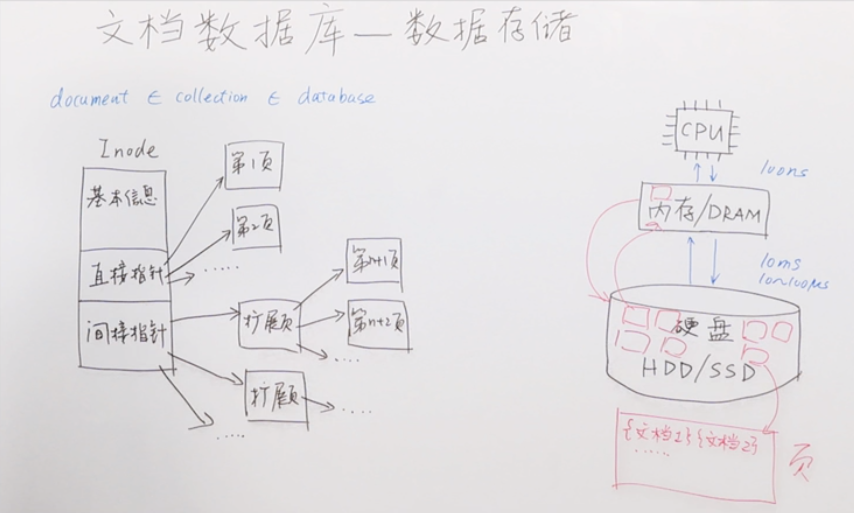 文档数据库—数据存储
document ∈ collection ∈ database
Inode
基本信息
直接指针
间接指针
第1页
第2页
......
扩展页
第n+1页
第n+2页
....
扩展页
....
.....
CPU
100ns
内存/DRAM
10ms
10~100μs
硬盘
HDD/SSD
{文档1}{文档2}
.....
页